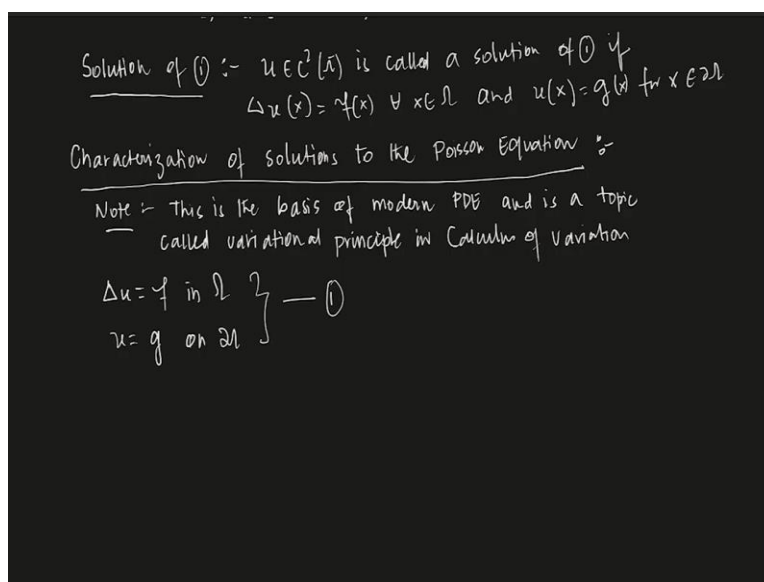 Solution of ① :- u ∈ C²(Ω̄) is called a solution of ① if
Δu(x) = f(x) ∀ x ∈ Ω and u(x) = g(x) for x ∈ ∂Ω
Characterization of solutions to the Poisson Equation :-
Note :- This is the basis of modern PDE and is a topic
called variational principle in Calculus of variation
Δu = f in Ω } — ①
u = g on ∂Ω